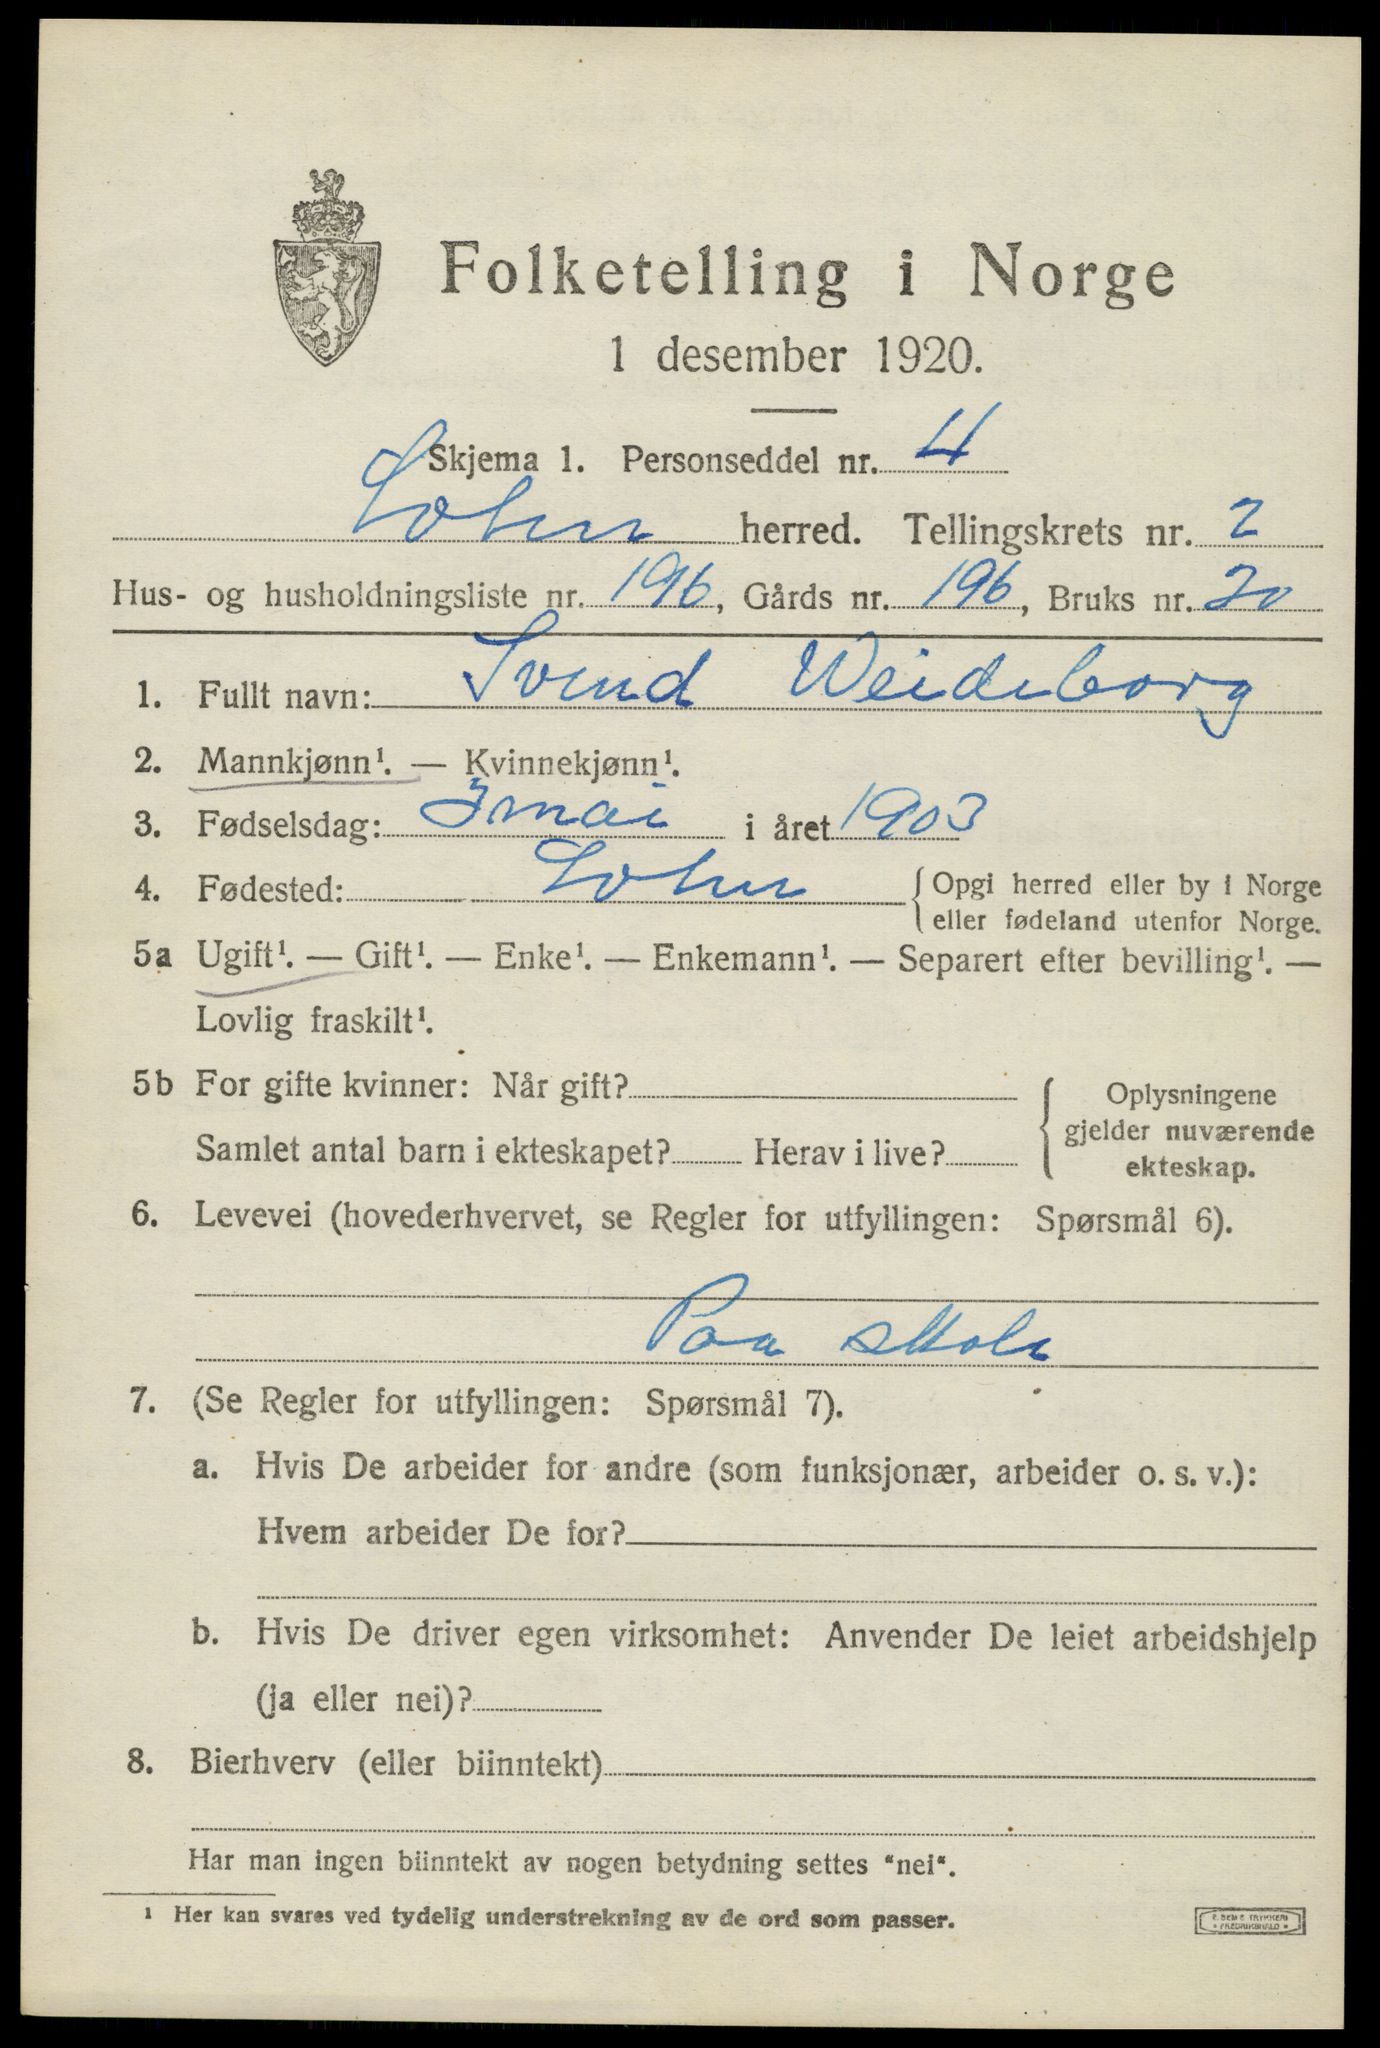 Folketelling i Norge
1 desember 1920.
Skjema 1. Personseddel nr. 4
herred. Tellingskrets nr. 2
Hus- og husholdningsliste nr. 196, Gårds nr. 196, Bruks nr. 20
1. Fullt navn: Svend Weideborg
2. Mannkjønn¹. — Kvinnekjønn¹.
3. Fødselsdag: 3 mai i året 1903
4. Fødested: { Opgi herred eller by i Norge
eller fødeland utenfor Norge.
5a Ugift¹. — Gift¹. — Enke¹. — Enkemann¹. — Separert efter bevilling¹. —
Lovlig fraskilt¹.
5b For gifte kvinner: Når gift?
Samlet antal barn i ekteskapet? Herav i live?
{ Oplysningene
gjelder nuværende
ekteskap.
6. Levevei (hovederhvervet, se Regler for utfyllingen: Spørsmål 6).
Paa skole
7. (Se Regler for utfyllingen: Spørsmål 7).
a. Hvis De arbeider for andre (som funksjonær, arbeider o. s. v.):
Hvem arbeider De for?
b. Hvis De driver egen virksomhet: Anvender De leiet arbeidshjelp
(ja eller nei)?
8. Bierhverv (eller biinntekt)
Har man ingen biinntekt av nogen betydning settes "nei".
¹ Her kan svares ved tydelig understrekning av de ord som passer.
E. SEM'S TRYKKERI
FREDRIKSHALD